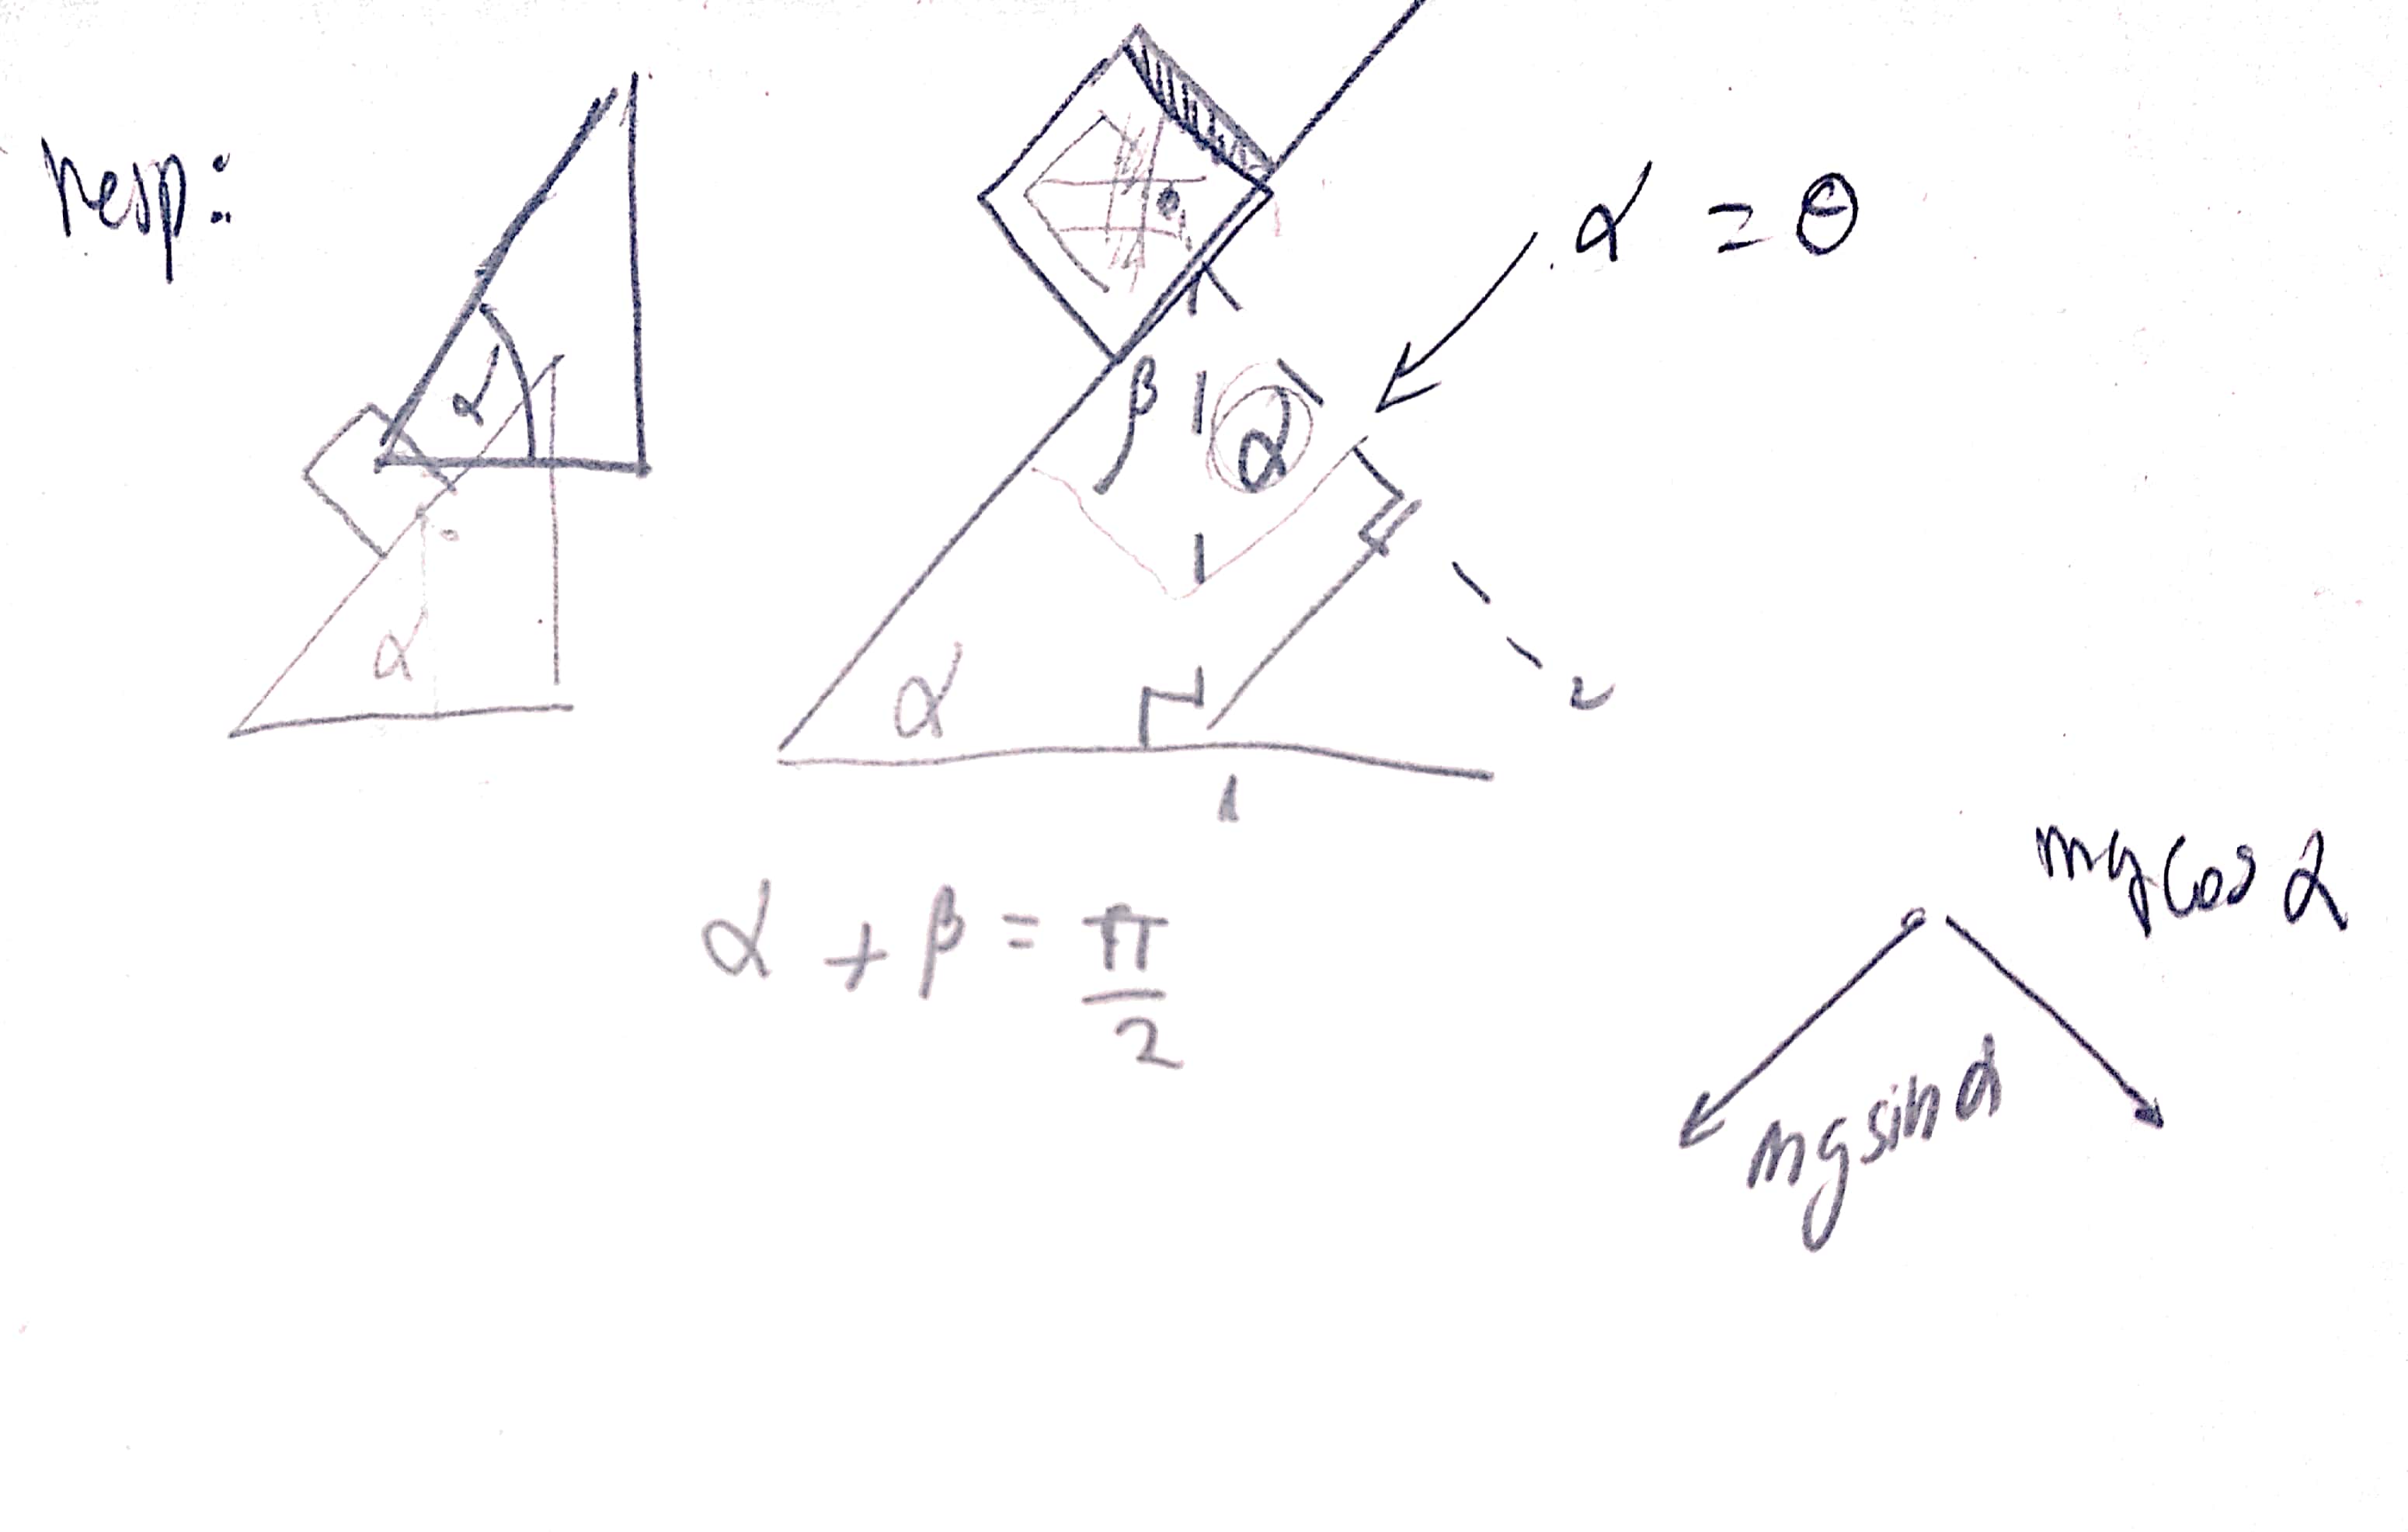 resp:
α = θ
α
β
α
α
α
α + β = π/2
mg cos α
mg sin α